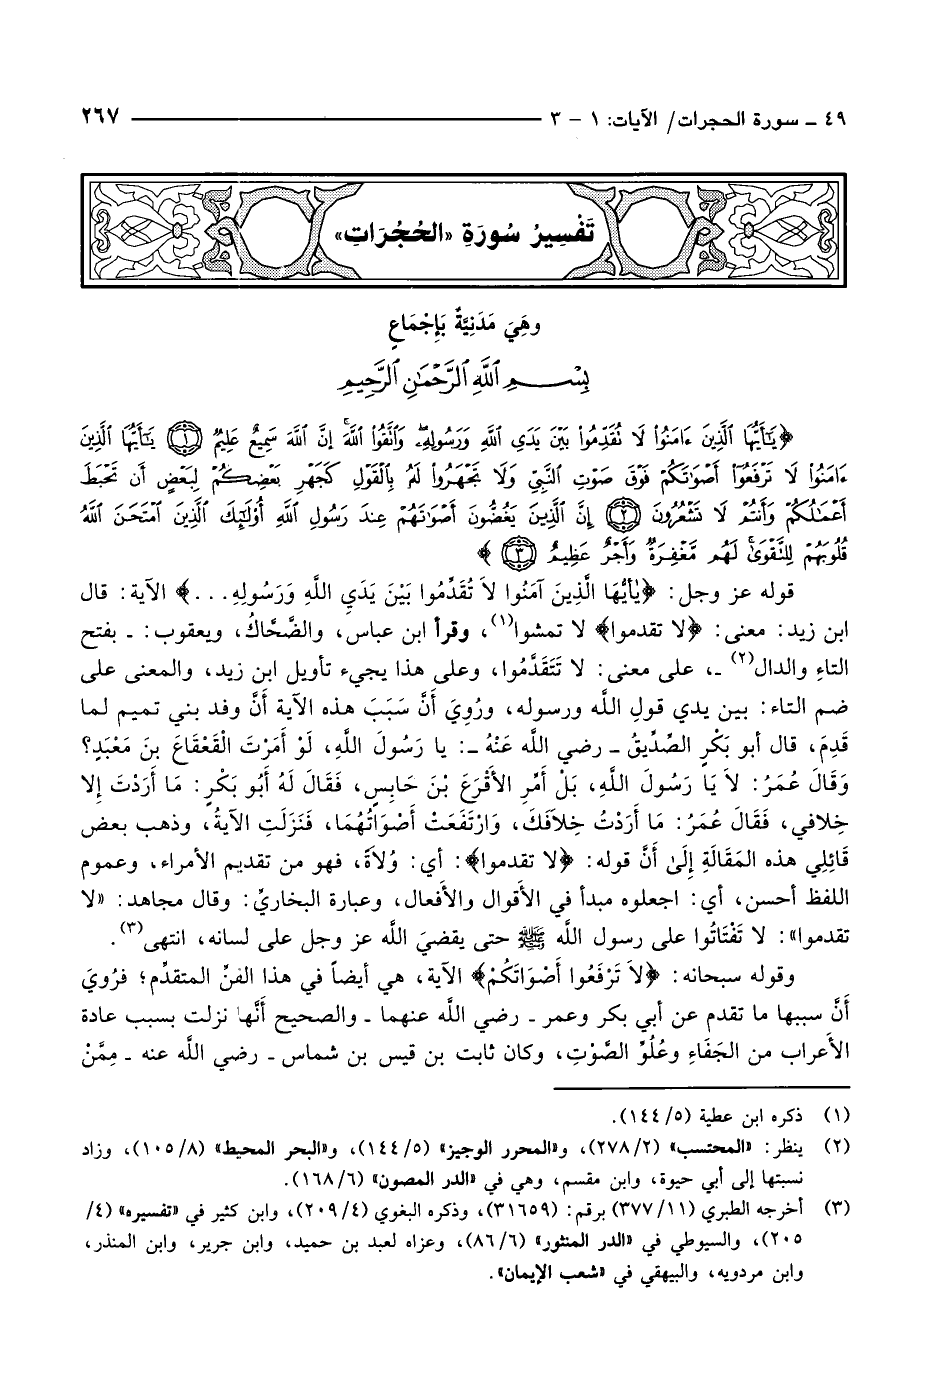 ٤٩ ـ سورة الحجرات/ الآيات: ١ - ٣
٢٦٧
تَفْسِيرُ سُورَةِ «الحُجُرَاتِ»
وهِيَ مَدَنِيَّةٌ بَإِجْمَاعٍ
بِسْمِ اللَّهِ الرَّحْمَٰنِ الرَّحِيمِ
﴿يَٰٓأَيُّهَا ٱلَّذِينَ ءَامَنُوا۟ لَا نُقَدِّمُوا۟ بَيْنَ يَدَىِ ٱللَّهِ وَرَسُولِهِۦ وَٱتَّقُوا۟ ٱللَّهَ إِنَّ ٱللَّهَ سَمِيعٌ عَلِيمٌ ﴿١﴾ يَٰٓأَيُّهَا ٱلَّذِينَ
ءَامَنُوا۟ لَا تَرْفَعُوٓا۟ أَصْوَٰتَكُمْ فَوْقَ صَوْتِ ٱلنَّبِىِّ وَلَا تَجْهَرُوا۟ لَهُۥ بِٱلْقَوْلِ كَجَهْرِ بَعْضِكُمْ لِبَعْضٍ أَن تَحْبَطَ
أَعْمَٰلُكُمْ وَأَنتُمْ لَا تَشْعُرُونَ ﴿٢﴾ إِنَّ ٱلَّذِينَ يَغُضُّونَ أَصْوَٰتَهُمْ عِندَ رَسُولِ ٱللَّهِ أُو۟لَٰٓئِكَ ٱلَّذِينَ ٱمْتَحَنَ ٱللَّهُ
قُلُوبَهُمْ لِلتَّقْوَىٰ لَهُم مَّغْفِرَةٌ وَأَجْرٌ عَظِيمٌ ﴿٣﴾ ﴾
قوله عز وجل: ﴿يٰأَيُّهَا الَّذِينَ آمَنُوا لاَ تُقَدِّمُوا بَيْنَ يَدَيِ اللَّهِ وَرَسُولِهِ...﴾ الآية: قال
ابن زيد: معنى: ﴿لا تقدموا﴾ لا تمشوا(١)، وقرأ ابن عباس، والضَّحَّاكُ، ويعقوب: ـ بفتح
التاءِ والدال(٢) ـ، على معنى: لا تَتَقَدَّمُوا، وعلى هذا يجيء تأويل ابن زيد، والمعنى على
ضم التاء: بين يدي قولِ اللَّه ورسوله، ورُوِيَ أَنَّ سَبَبَ هذه الآية أَنَّ وفد بني تميم لما
قَدِمَ، قال أبو بَكْرٍ الصِّدِّيقُ ـ رضي اللَّه عَنْهُ ـ: يا رَسُولَ اللَّهِ، لَوْ أَمَرْتَ الْقَعْقَاعَ بنَ مَعْبَدٍ؟
وَقَالَ عُمَرُ: لاَ يَا رَسُولَ اللَّهِ، بَلْ أَمِّرِ الأَقْرَعَ بْنَ حَابِسٍ، فَقَالَ لَهُ أَبُو بَكْرٍ: مَا أَرَدْتَ إِلا
خِلافي، فَقَالَ عُمَرُ: مَا أَرَدْتُ خِلاَفَكَ، وَارْتَفَعَتْ أَصْوَاتُهُمَا، فَنَزَلَتِ الآيةُ، وذهب بعض
قَائِلِي هذه المَقَالَةِ إِلَىٰ أَنَّ قوله: ﴿لا تقدموا﴾: أي: وُلاَةً، فهو من تقديم الأمراء، وعموم
اللفظ أحسن، أي: اجعلوه مبدأ في الأقوال والأفعال، وعبارة البخاريِّ: وقال مجاهد: «لا
تقدموا»: لا تَفْتَاتُوا على رسول اللَّه ﷺ حتى يقضيَ اللَّه عز وجل على لسانه، انتهى(٣).
وقوله سبحانه: ﴿لاَ تَرْفَعُوا أَصْوَاتَكُمْ﴾ الآية، هي أيضاً في هذا الفنِّ المتقدِّم؛ فرُوِيَ
أَنَّ سببها ما تقدم عن أبي بكر وعمر ـ رضي اللَّه عنهما ـ والصحيح أَنَّها نزلت بسبب عادة
الأَعراب من الجَفَاءِ وعُلُوِّ الصَّوْتِ، وكان ثابت بن قيس بن شماس ـ رضي اللَّه عنه ـ مِمَّنْ
(١) ذكره ابن عطية (١٤٤/٥).
(٢) ينظر: «المحتسب» (٢٧٨/٢)، و«المحرر الوجيز» (١٤٤/٥)، و«البحر المحيط» (١٠٥/٨)، وزاد
نسبتها إلى أبي حيوة، وابن مقسم، وهي في «الدر المصون» (١٦٨/٦).
(٣) أخرجه الطبري (٣٧٧/١١) برقم: (٣١٦٥٩)، وذكره البغوي (٢٠٩/٤)، وابن كثير في «تفسيره» (٤/
٢٠٥)، والسيوطي في «الدر المنثور» (٨٦/٦)، وعزاه لعبد بن حميد، وابن جرير، وابن المنذر،
وابن مردويه، والبيهقي في «شعب الإيمان».